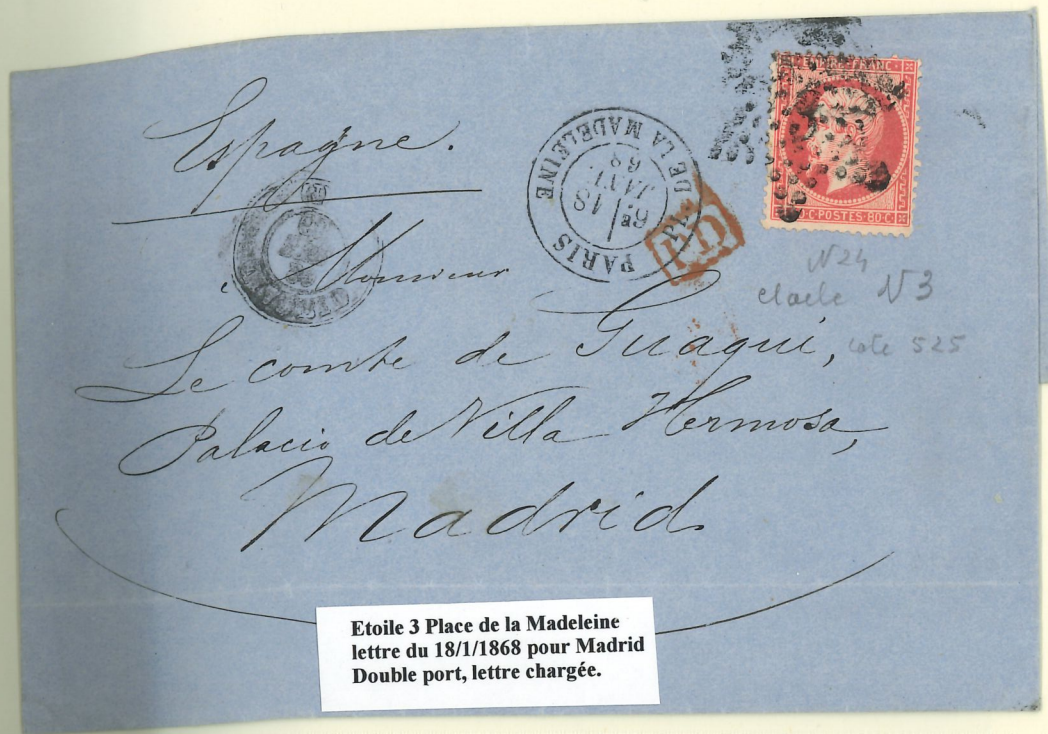 Espagne.
PARIS
PL. DE LA MADELEINE
6E
18
JANV.
68
PD
FRANC
80 C·POSTES·80 C
N24
etoile N3
cote 525
Monsieur
Le comte de Guaqui,
Palacio de Villa Hermosa,
Madrid
Etoile 3 Place de la Madeleine
lettre du 18/1/1868 pour Madrid
Double port, lettre chargée.